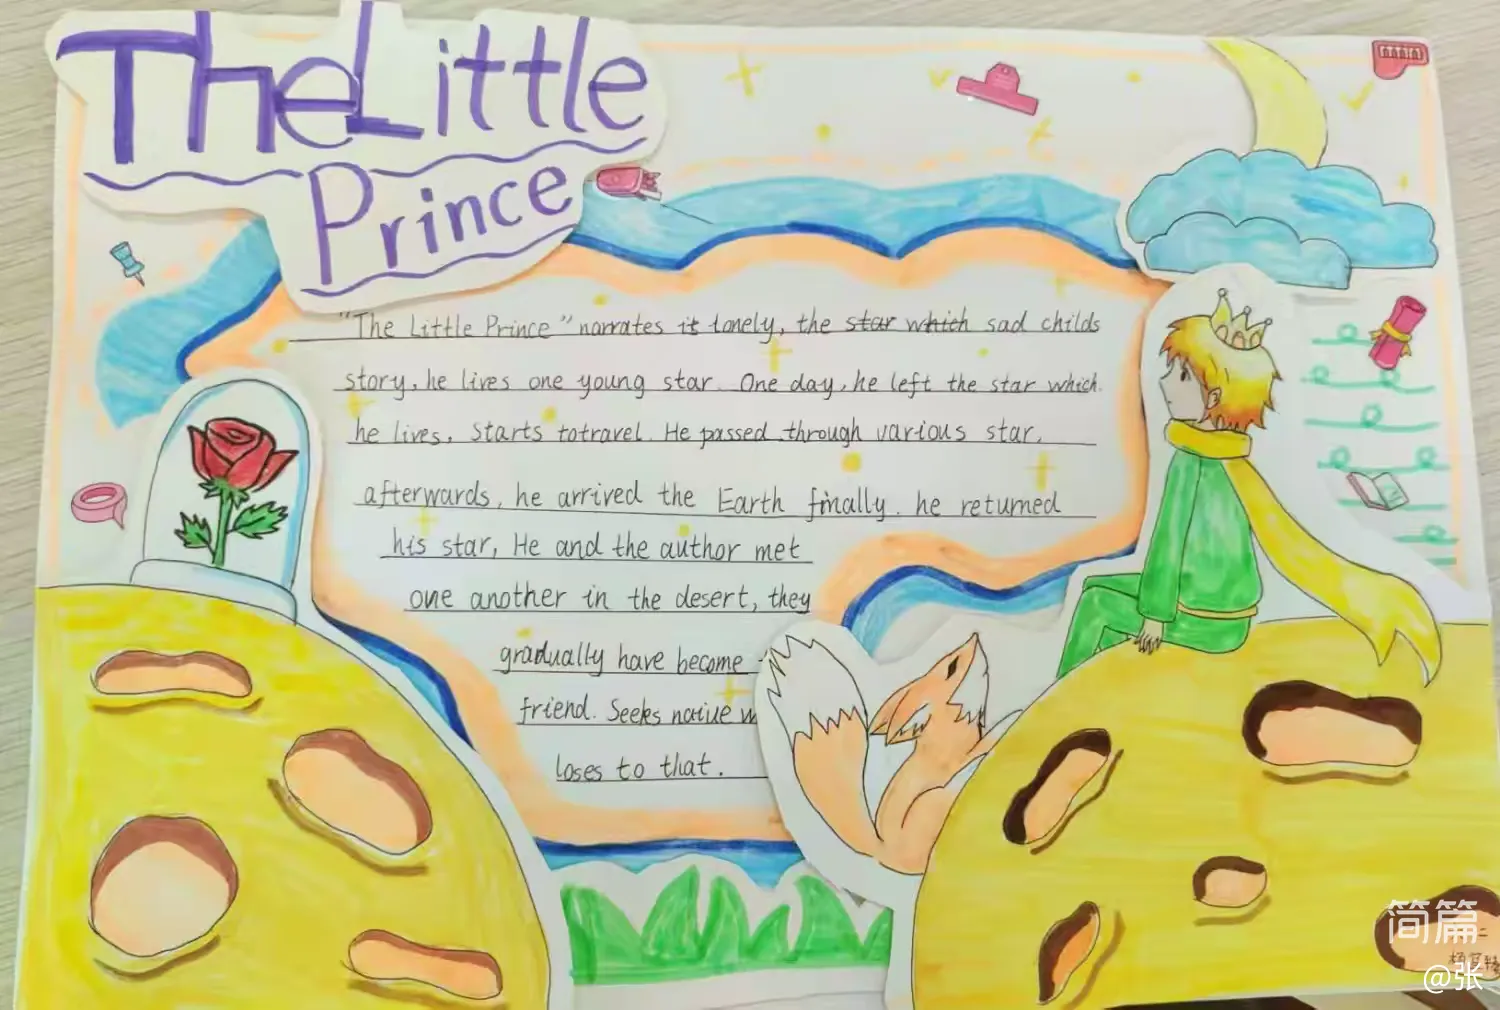 The Little
Prince
"The Little Prince" narrates it lonely, the star which sad childs
story, he lives one young star. One day, he left the star which
he lives, starts totravel. He passed through various star,
afterwards, he arrived the Earth finally. he returned
his star, He and the author met
one another in the desert, they
gradually have become
friend. Seeks native w
loses to that.
简篇
@张